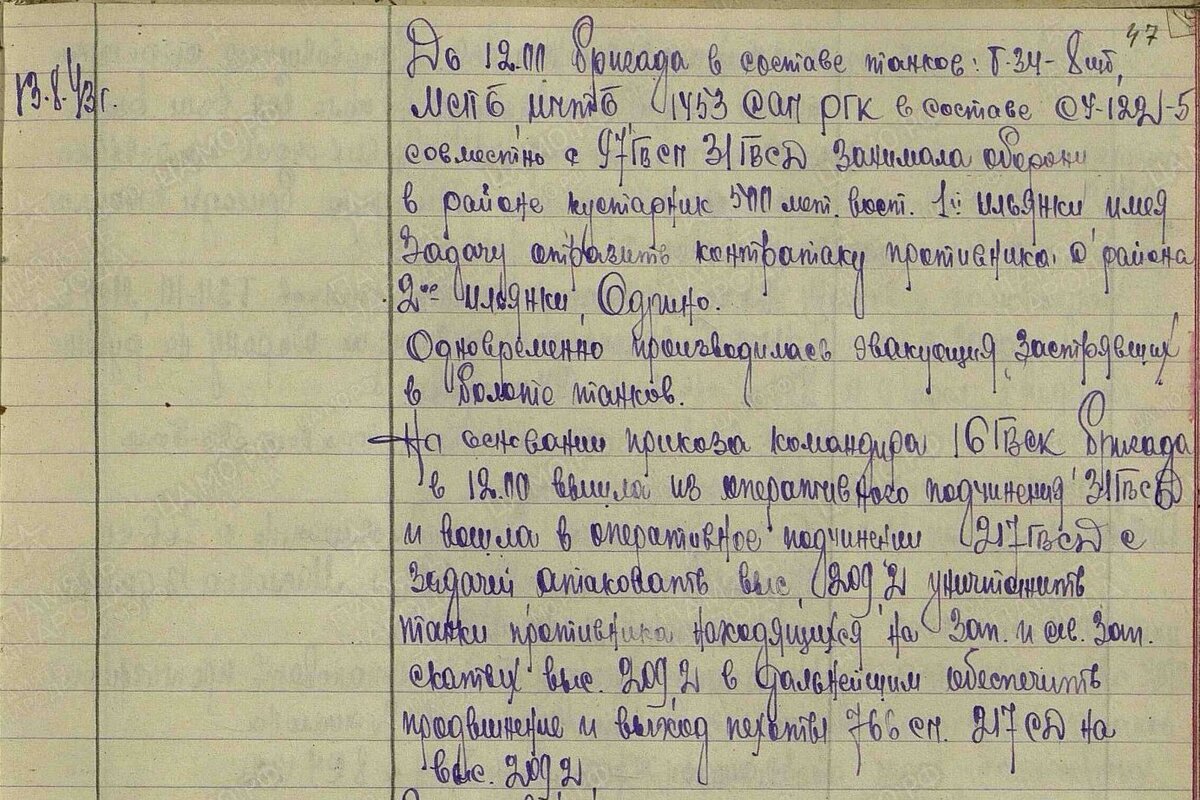 47
13.8.43г.
До 12.00 бригада в составе танков: Т-34- 8шт,
МСПБ, МЧПТБ, 1453 САП РГК в составе СУ-122-5
совместно с 97ГвСП 31ГвСД занимала оборону
в районе кустарник 500 мет. вост. 1й Ильянки имея
задачу отразить контратаку противника с района
2ое Ильянки, Одрино.
Одновременно производилась эвакуация застрявших
в болоте танков.
На основании приказа командира 16ГвСК бригада
в 12.00 вышла из оперативного подчинения 31ГвСД
и вошла в оперативное подчинении 217ГвСД с
задачей атаковать выс. 209,2 уничтожить
танки противника находящихся на зап. и св. зап.
скатых выс. 209,2 в дальнейшим обеспечить
продвинение и выход пехоты 766 сп. 217 СД на
выс. 209,2